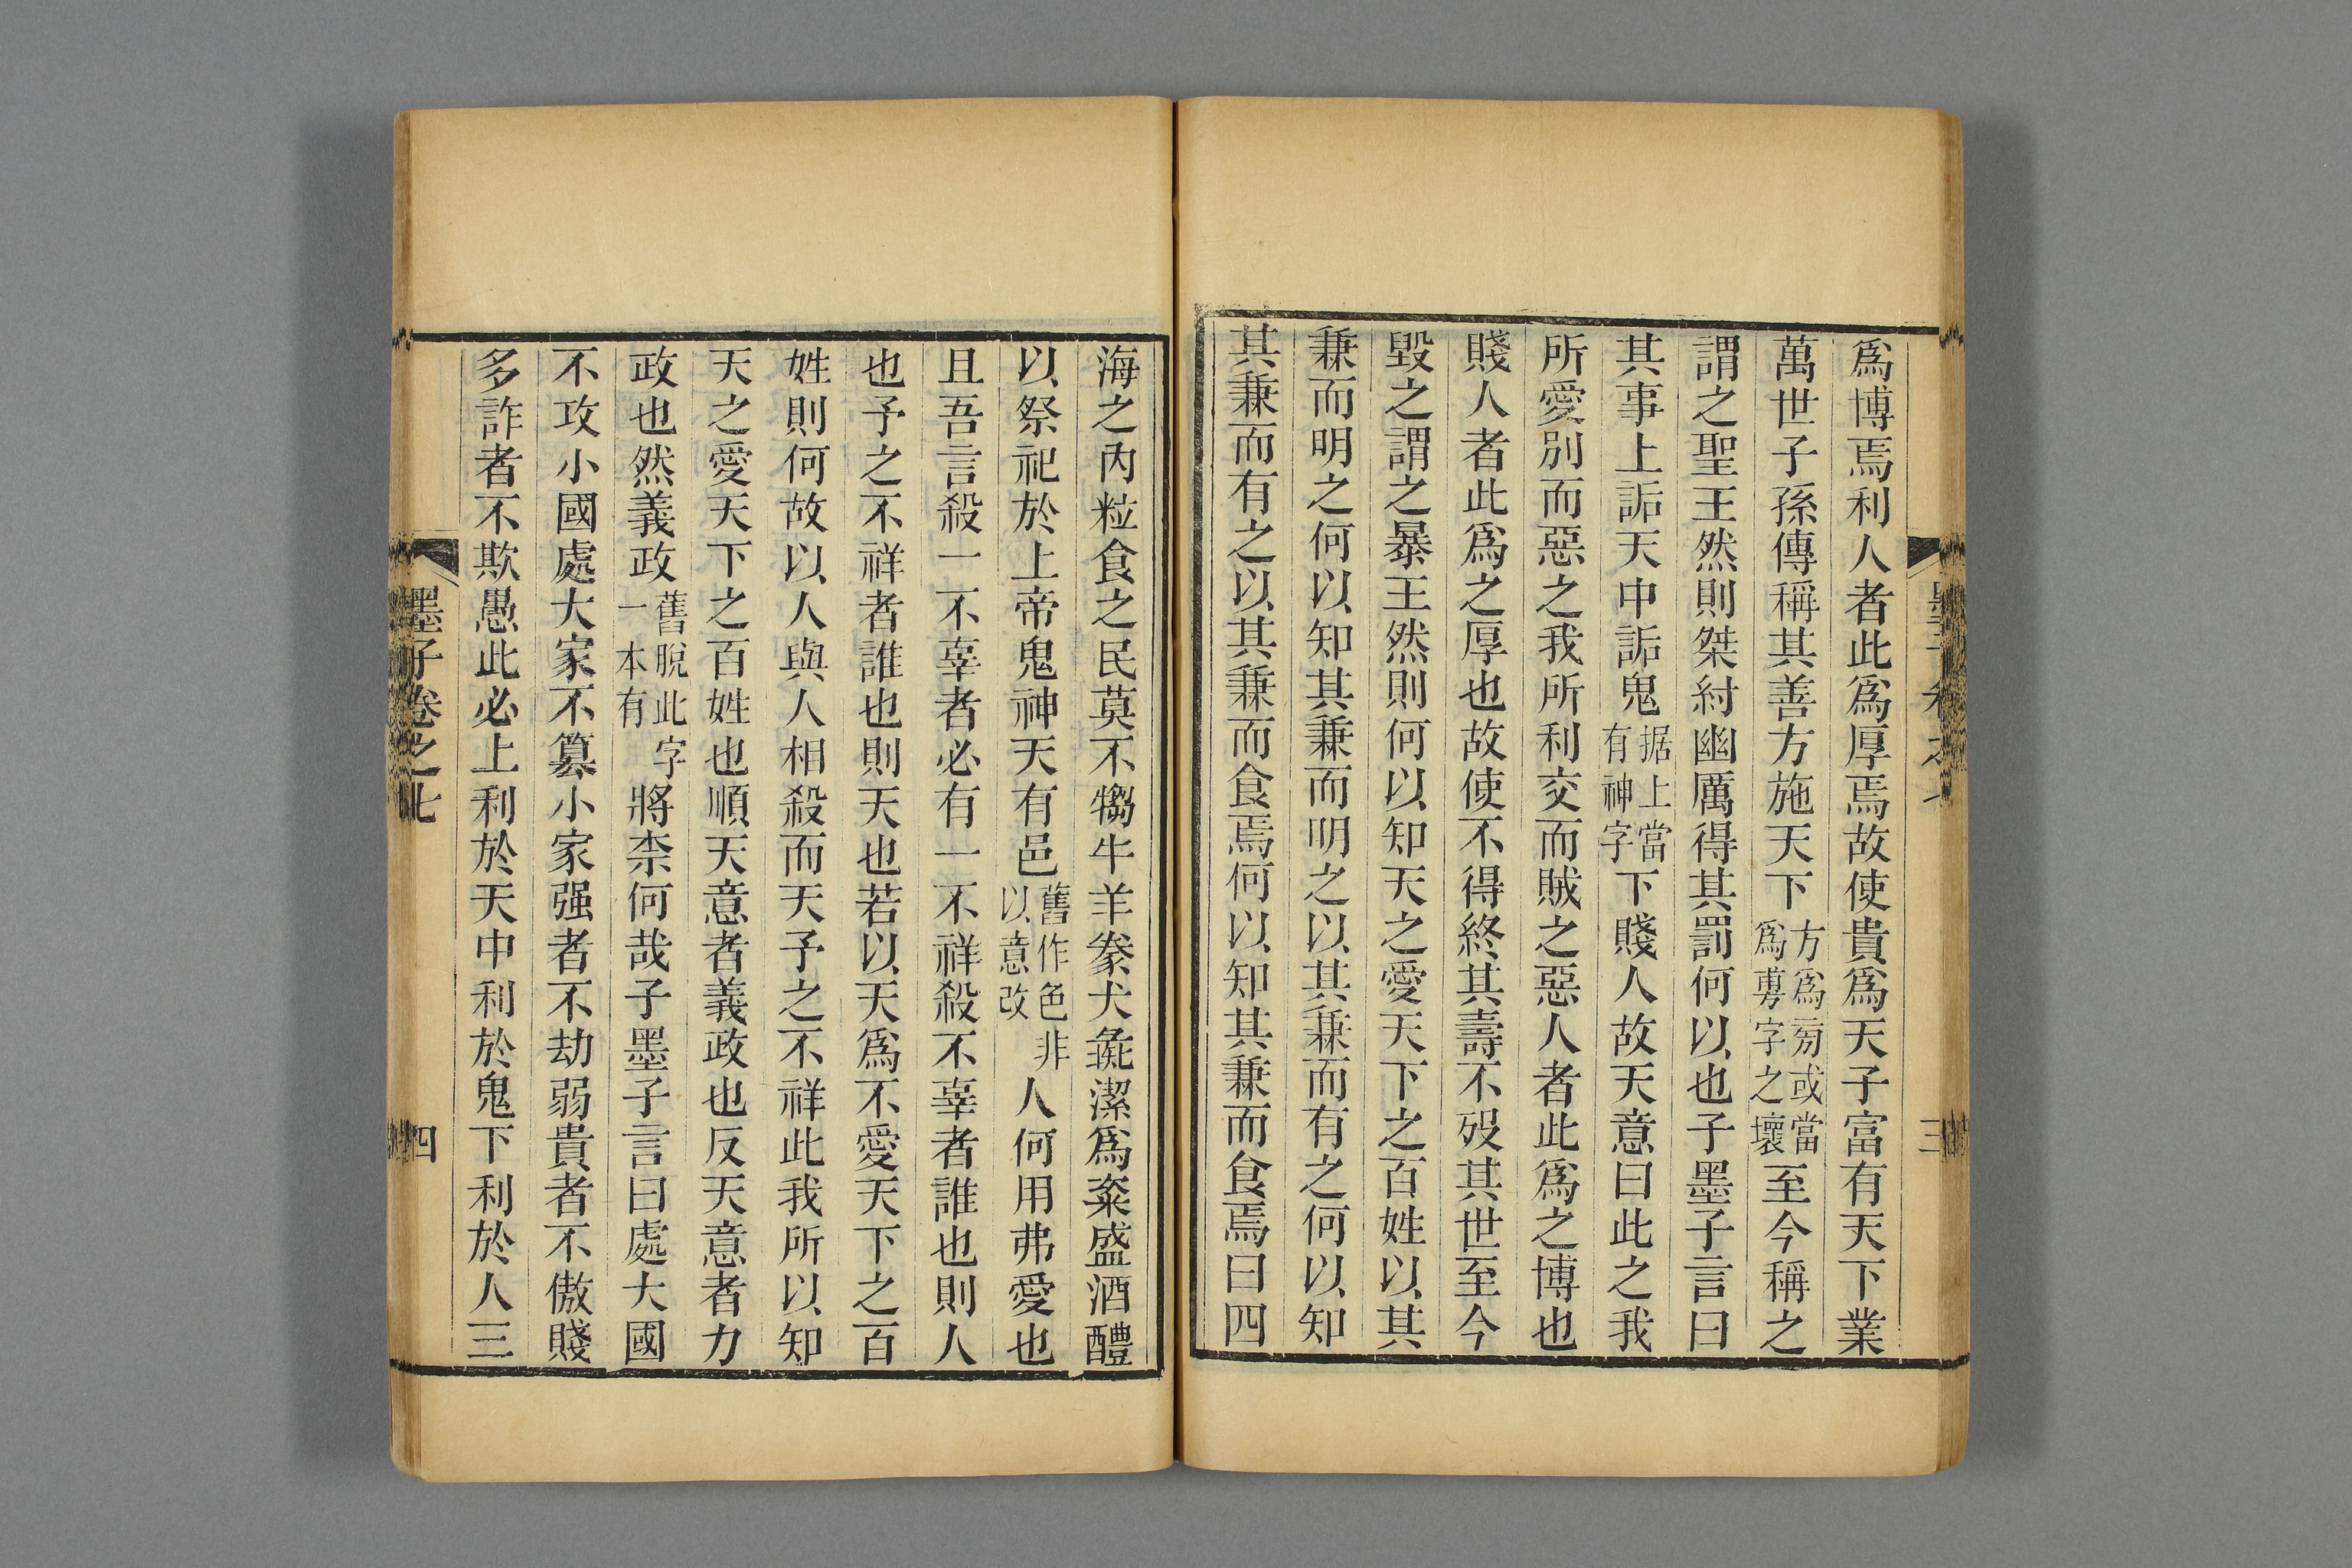 爲博焉利人者此爲厚焉故使貴爲天子富有天下業
萬世子孫傳稱其善方施天下方爲㫄或當爲旉字之壞至今稱之
謂之聖王然則桀紂幽厲得其罰何以也子墨子言曰
其事上詬天中詬鬼据上當有神字下賤人故天意曰此之我
所愛別而惡之我所利交而賊之惡人者此爲之博也
賤人者此爲之厚也故使不得終其壽不歿其世至今
毀之謂之暴王然則何以知天之愛天下之百姓以其
兼而明之何以知其兼而明之以其兼而有之何以知
其兼而有之以其兼而食焉何以知其兼而食焉曰四
海之內粒食之民莫不犓牛羊豢犬彘潔爲粢盛酒醴
以祭祀於上帝鬼神天有邑舊作色非以意改人何用弗愛也
且吾言殺一不辜者必有一不祥殺不辜者誰也則人
也予之不祥者誰也則天也若以天爲不愛天下之百
姓則何故以人與人相殺而天予之不祥此我所以知
天之愛天下之百姓也順天意者義政也反天意者力
政也然義政舊脫此字一本有將柰何哉子墨子言曰處大國
不攻小國處大家不篡小家强者不劫弱貴者不傲賤
多詐者不欺愚此必上利於天中利於鬼下利於人三
墨子卷之七
四